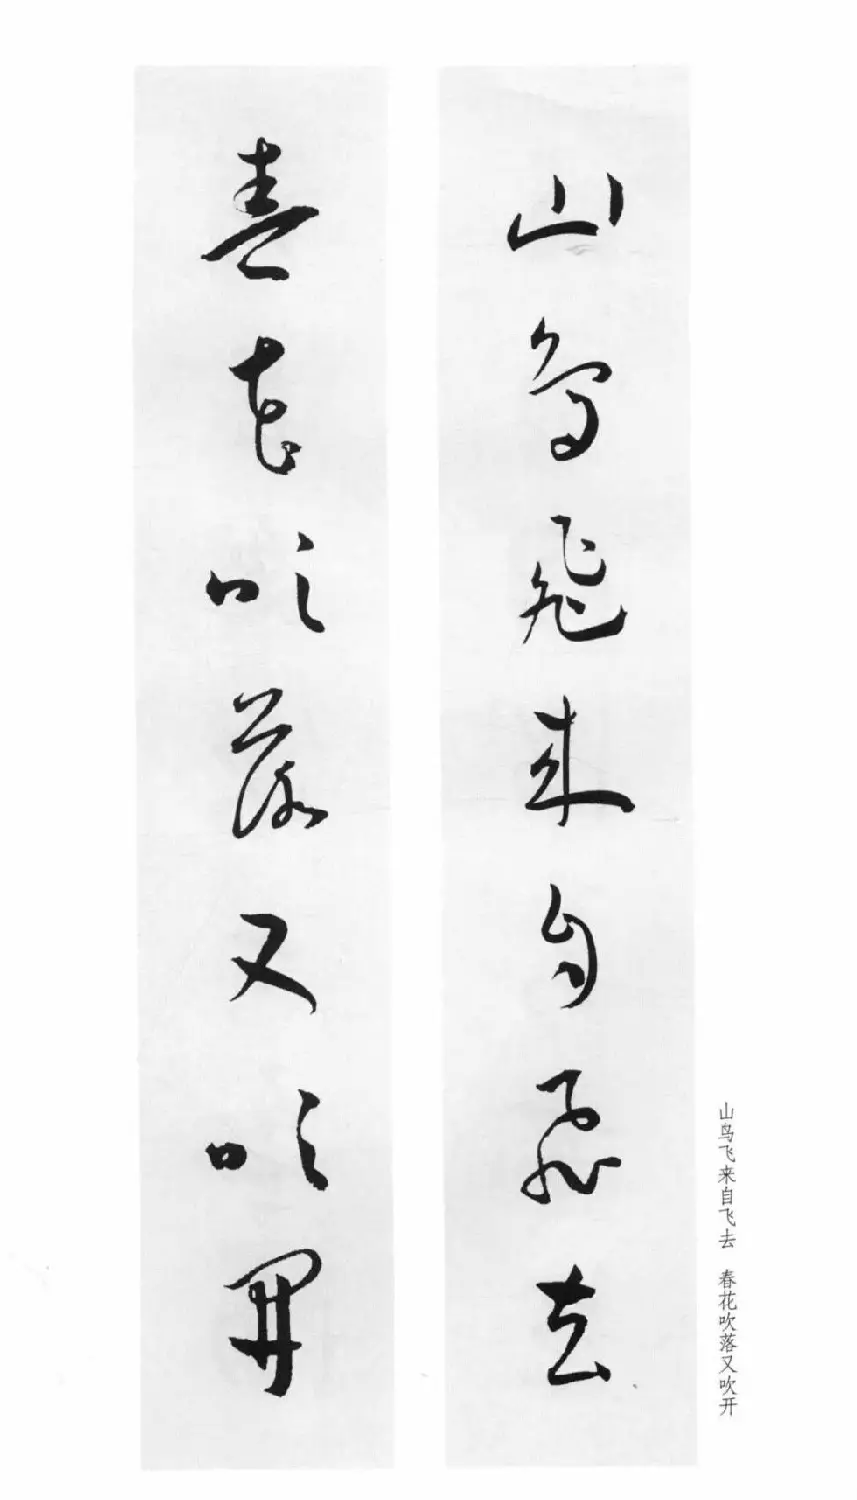 山鳥飛来自飛去
春花吹落又吹開
山鸟飞来自飞去 春花吹落又吹开